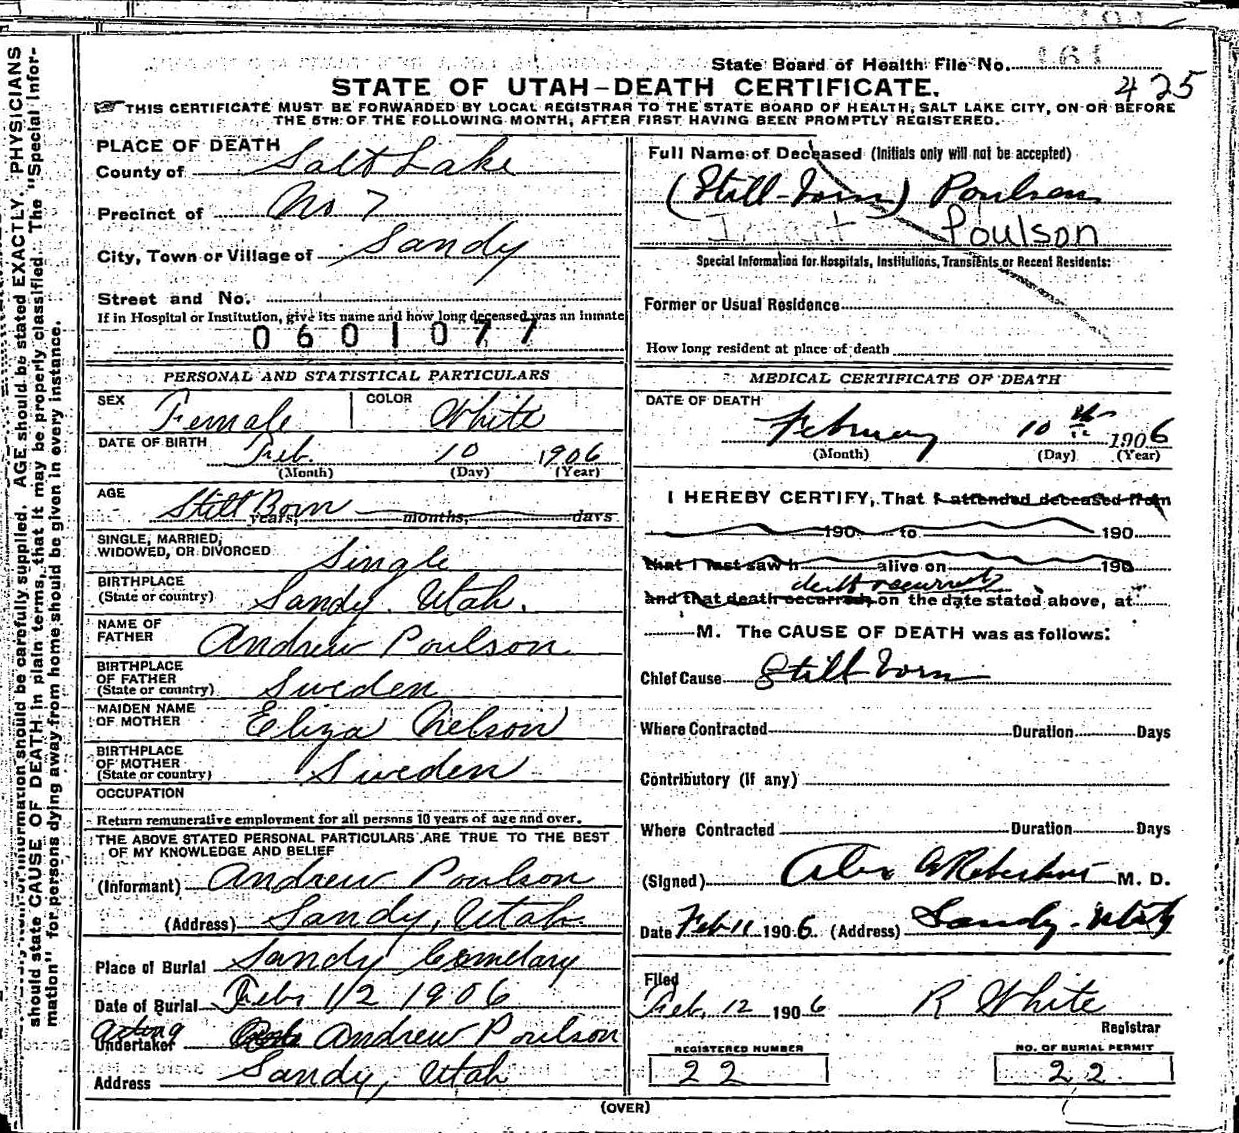 State Board of Health File No. 161
425
STATE OF UTAH–DEATH CERTIFICATE.
THIS CERTIFICATE MUST BE FORWARDED BY LOCAL REGISTRAR TO THE STATE BOARD OF HEALTH, SALT LAKE CITY, ON OR BEFORE
THE 5TH OF THE FOLLOWING MONTH, AFTER FIRST HAVING BEEN PROMPTLY REGISTERED.
PHYSICIANS
should be carefully supplied. AGE should be stated EXACTLY.
should state CAUSE OF DEATH in plain terms, that it may be properly classified. The "Special Infor-
mation" for persons dying away from home should be given in every instance.
PLACE OF DEATH
County of Salt Lake
Precinct of No 7
City, Town or Village of Sandy
Street and No.
If in Hospital or Institution, give its name and how long deceased was an inmate
0601077
PERSONAL AND STATISTICAL PARTICULARS
SEX Female COLOR White
DATE OF BIRTH Feb. 10 1906
(Month) (Day) (Year)
AGE Still Born
years, months, days
SINGLE, MARRIED,
WIDOWED, OR DIVORCED Single
BIRTHPLACE
(State or country) Sandy. Utah.
NAME OF
FATHER Andrew Poulson
BIRTHPLACE
OF FATHER
(State or country) Sweden
MAIDEN NAME
OF MOTHER Eliza Nelson
BIRTHPLACE
OF MOTHER
(State or country) Sweden
OCCUPATION
Return remunerative employment for all persons 10 years of age and over.
THE ABOVE STATED PERSONAL PARTICULARS ARE TRUE TO THE BEST
OF MY KNOWLEDGE AND BELIEF
(Informant) Andrew Poulson
(Address) Sandy, Utah.
Place of Burial Sandy Cemetary
Date of Burial Feb. 12 1906
acting
Undertaker Andrew Poulson
Address Sandy, Utah
Full Name of Deceased (Initials only will not be accepted)
(Still-born) Poulsen
Infant Poulson
Special Information for Hospitals, Institutions, Transients or Recent Residents:
Former or Usual Residence
How long resident at place of death
MEDICAL CERTIFICATE OF DEATH
DATE OF DEATH
February 10 th 1906
(Month) (Day) (Year)
I HEREBY CERTIFY, That I attended deceased from
190 to 190
that I last saw h alive on 190
death occurred
and that death occurred on the date stated above, at
M. The CAUSE OF DEATH was as follows:
Chief Cause Still born
Where Contracted Duration Days
Contributory (if any)
Where Contracted Duration Days
(Signed) Alex M. D.
Date Feb 11 1906 (Address) Sandy - Utah
Filed
Feb. 12 1906 R White
Registrar
REGISTERED NUMBER
22
NO. OF BURIAL PERMIT
22
(OVER)